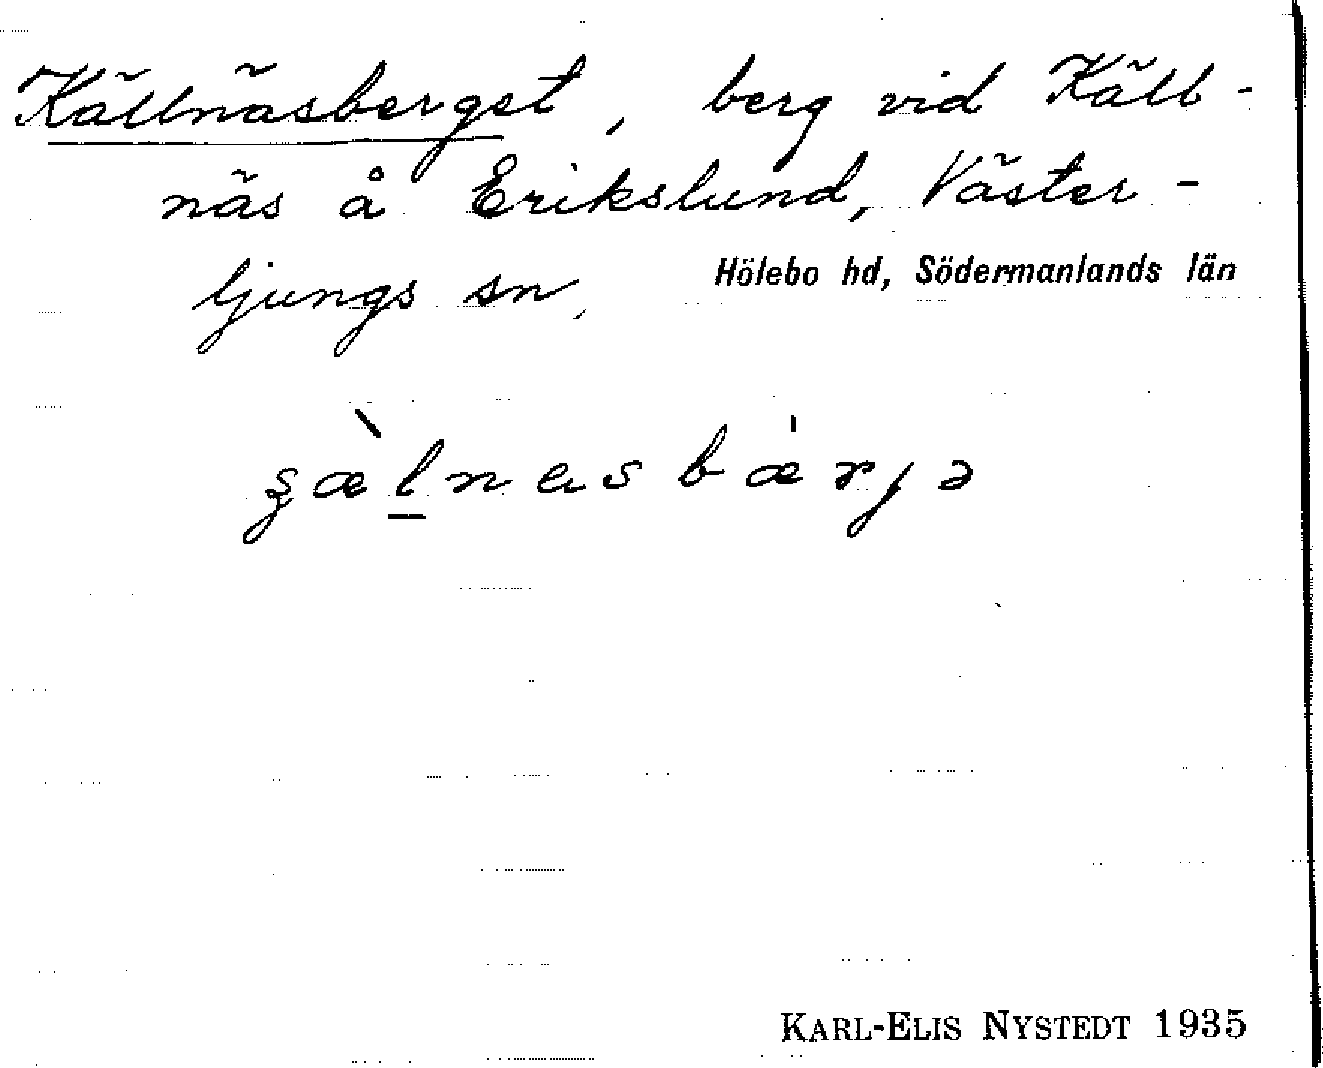 Källnäsberget, berg vid Käll-
näs å Erikslund, Väster-
ljungs sn, Hölebo hd, Södermanlands län
KARL-ELIS NYSTEDT 1935